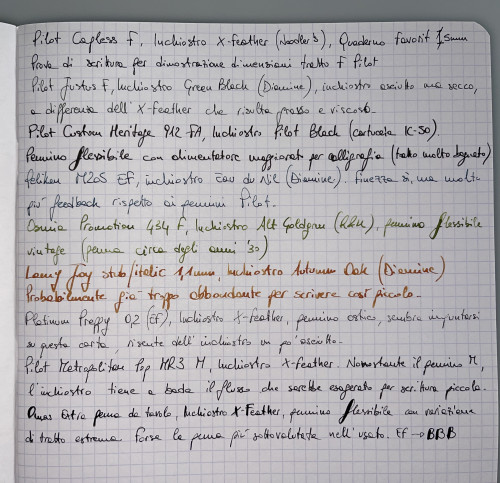 Pilot Capless F, Inchiostro X-feather (Noodler's), Quaderno favorit 1,5mm
Prova di scrittura per dimostrazione dimensioni tratto F Pilot
Pilot Justus F, Inchiostro Green Black (Diamine), inchiostro asciutto ma secco,
a differenza dell'X-feather che risulta grasso e viscoso.
Pilot Custom Heritage 912-FA, Inchiostro Pilot Black (cartuccia IC-50).
Pennino flessibile con alimentatore maggiorato per calligrafia (tratto molto bagnato)
Pelikan M205 EF, inchiostro Eau de Nil (Diamine). Finezza sì, ma molto
più feedback rispetto ai pennini Pilot.
Osmia Promotion 434 F, Inchiostro Alt Goldgrun (R&K), pennino flessibile
vintage (penna circa degli anni '30)
Lamy Joy stub/italic 1,1mm, Inchiostro Autumn Oak (Diamine)
Probabilmente già troppo abbondante per scrivere così piccolo.
Platinum Preppy 0,2 (EF), Inchiostro X-feather, pennino ostico, sembra impuntarsi
su questa carta, risente dell'inchiostro un po' asciutto.
Pilot Metropolitan Pop MR3 M, Inchiostro X-feather. Nonostante il pennino M,
l'inchiostro tiene a bada il flusso che sarebbe esagerato per scrittura piccola.
Omas Extra penna da tavolo, Inchiostro X-Feather, pennino flessibile con variazione
di tratto estrema forse la penna più sottovalutata nell'usato. EF → BBB